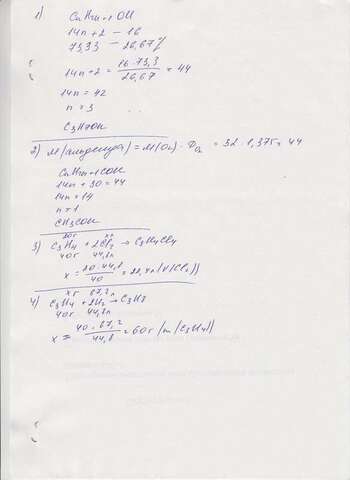 1) CnH2n+1OH
14n+2 – 16
73,33 – 26,67%
14n+2 = 16·73,3 / 26,67 = 44
14n = 42
n = 3
C3H7OH
2) M(альдегида) = M(O2) · DO2 = 32 · 1,375 = 44
CnH2n+1COH
14n + 30 = 44
14n = 14
n = 1
CH3COH
20г xл
3) C3H4 + 2Cl2 → C3H4Cl4
40г 44,8л
x = 20·44,8 / 40 = 22,4л (V(Cl2))
xг 67,2л
4) C3H4 + 2H2 → C3H8
40г 44,8л
x = 40·67,2 / 44,8 = 60г (m(C3H4))